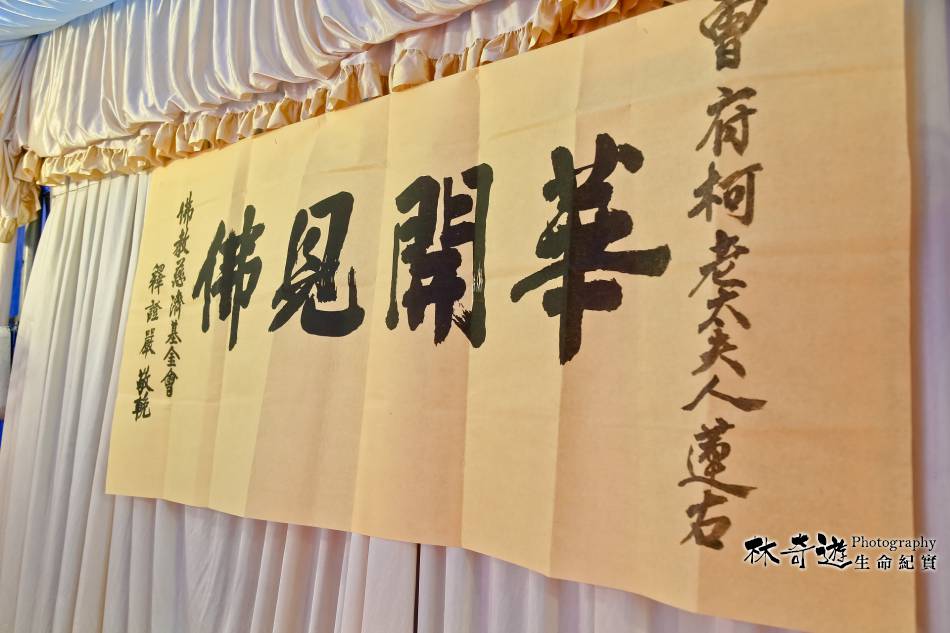 曾府柯老太夫人蓮右
華開見佛
佛教慈濟基金會
釋證嚴 敬輓
林奇遊 Photography
生命紀實